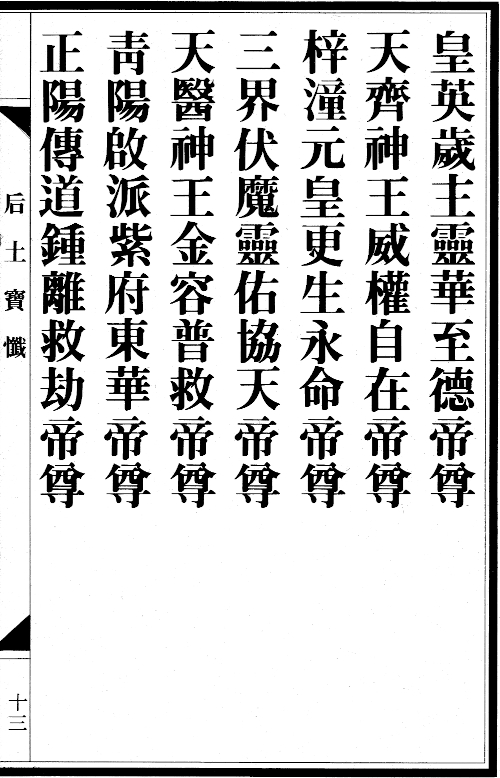 皇英歲主靈華至德帝尊
天齊神王威權自在帝尊
梓潼元皇更生永命帝尊
三界伏魔靈佑協天帝尊
天醫神王金容普救帝尊
靑陽啟派紫府東華帝尊
正陽傳道鍾離救劫帝尊
后土寶懺
十三